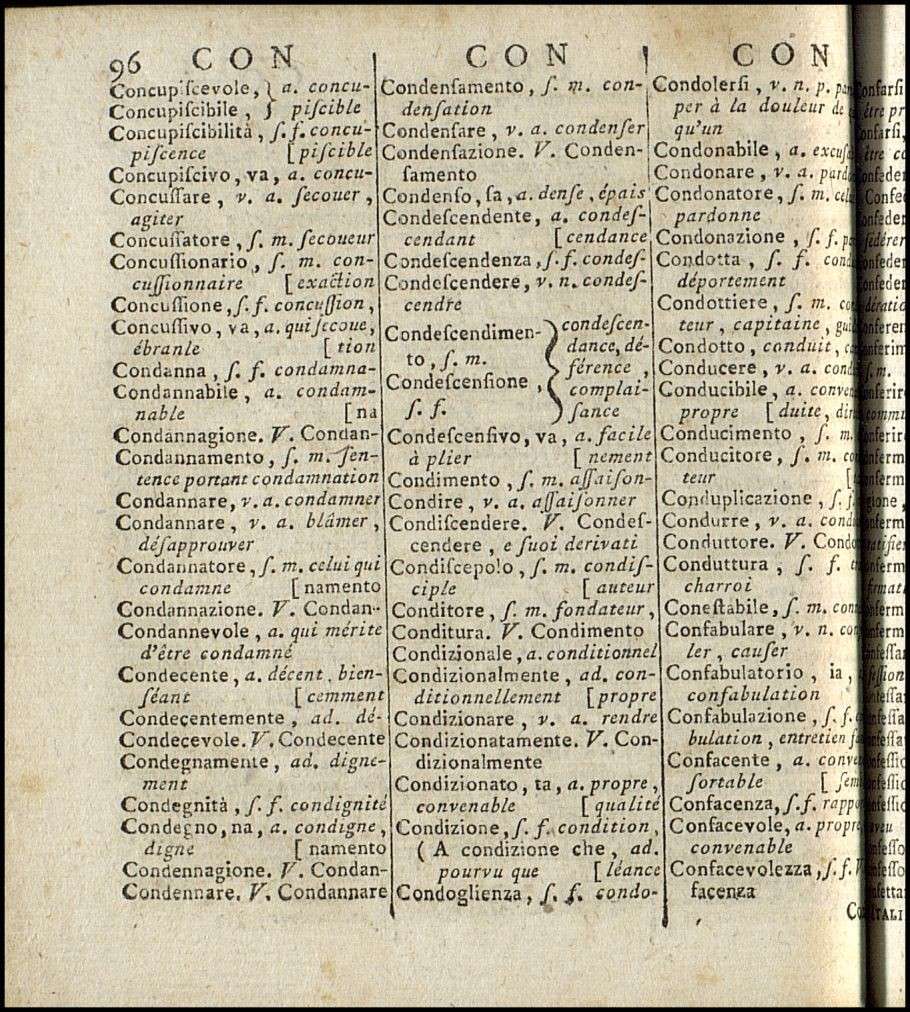 96 CON CON CON
Concupiſcevole, } a. concu-
Concupiſcibile, } piſcible
Concupiſcibilità, ſ. f. concu-
piſcence [piſcible
Concupiſcivo, va, a. concu-
Concuſſare, v. a. ſecouer,
agiter
Concuſſatore, ſ. m. ſecoueur
Concuſſionario, ſ. m. con-
cuſſionnaire [exaction
Concuſſione, ſ. f. concuſſion,
Concuſſivo, va, a. qui ſecoue,
ébranle [tion
Condanna, ſ. f. condamna-
Condannabile, a. condam-
nable [na
Condannagione. V. Condan-
Condannamento, ſ. m. ſen-
tence portant condamnation
Condannare, v. a. condamner
Condannare, v. a. blâmer,
déſapprouver
Condannatore, ſ. m. celui qui
condamne [namento
Condannazione. V. Condan-
Condannevole, a. qui mérite
d'être condamné
Condecente, a. décent, bien-
ſéant [cemment
Condecentemente, ad. dé-
Condecevole. V. Condecente
Condegnamente, ad. digne-
ment
Condegnità, ſ. f. condignité
Condegno, na, a. condigne,
digne [namento
Condennagione. V. Condan-
Condennare. V. Condannare
Condenſamento, ſ. m. con-
denſation
Condenſare, v. a. condenſer
Condenſazione. V. Conden-
ſamento
Condenſo, ſa, a. denſe, épais
Condeſcendente, a. condeſ-
cendant [cendance
Condeſcendenza, ſ. f. condeſ-
Condeſcendere, v. n. condeſ-
cendre
Condeſcendimen- } condeſcen-
to, ſ. m. } dance, dé-
férence,
Condeſcenſione, } complai-
ſ. f. } ſance
Condeſcenſivo, va, a. facile
à plier [nement
Condimento, ſ. m. aſſaiſon-
Condire, v. a. aſſaiſonner
Condiſcendere. V. Condeſ-
cendere, e ſuoi derivati
Condiſcepolo, ſ. m. condiſ-
ciple [auteur
Conditore, ſ. m. fondateur,
Conditura. V. Condimento
Condizionale, a. conditionnel
Condizionalmente, ad. con-
ditionnellement [propre
Condizionare, v. a. rendre
Condizionatamente. V. Con-
dizionalmente
Condizionato, ta, a. propre,
convenable [qualité
Condizione, ſ. f. condition,
(A condizione che, ad.
pourvu que [léance
Condoglienza, ſ. f. condo-
Condolerſi, v. n. p.
per à la douleur de
qu'un
Condonabile, a.
Condonare, v. a.
Condonatore, ſ. m.
pardonne
Condonazione, ſ. f.
Condotta, ſ. f.
département
Condottiere, ſ. m.
teur, capitaine,
Condotto, conduit,
Conducere, v. a.
Conducibile, a.
propre [duite,
Conducimento, ſ. m.
Conducitore, ſ. m.
teur [
Conduplicazione, ſ. f.
Condurre, v. a.
Conduttore. V.
Conduttura, ſ. f.
charroi
Coneſtabile, ſ. m.
Confabulare, v. n.
ler, cauſer
Confabulatorio, ia,
confabulation
Confabulazione, ſ. f.
bulation, entretien
Confacente, a.
ſortable [
Confacenza, ſ. f.
Confacevole, a. propre
convenable
Confacevolezza, ſ. f.
facenza